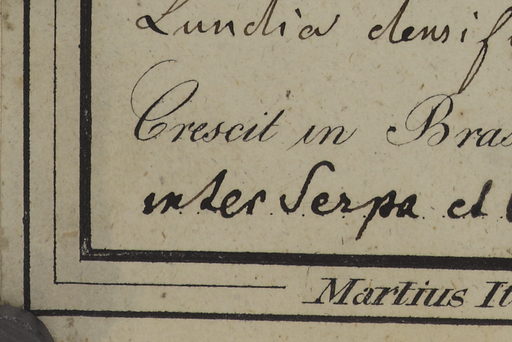 Lundia densif
Crescit in Bras
inter Serpa et
Martius It